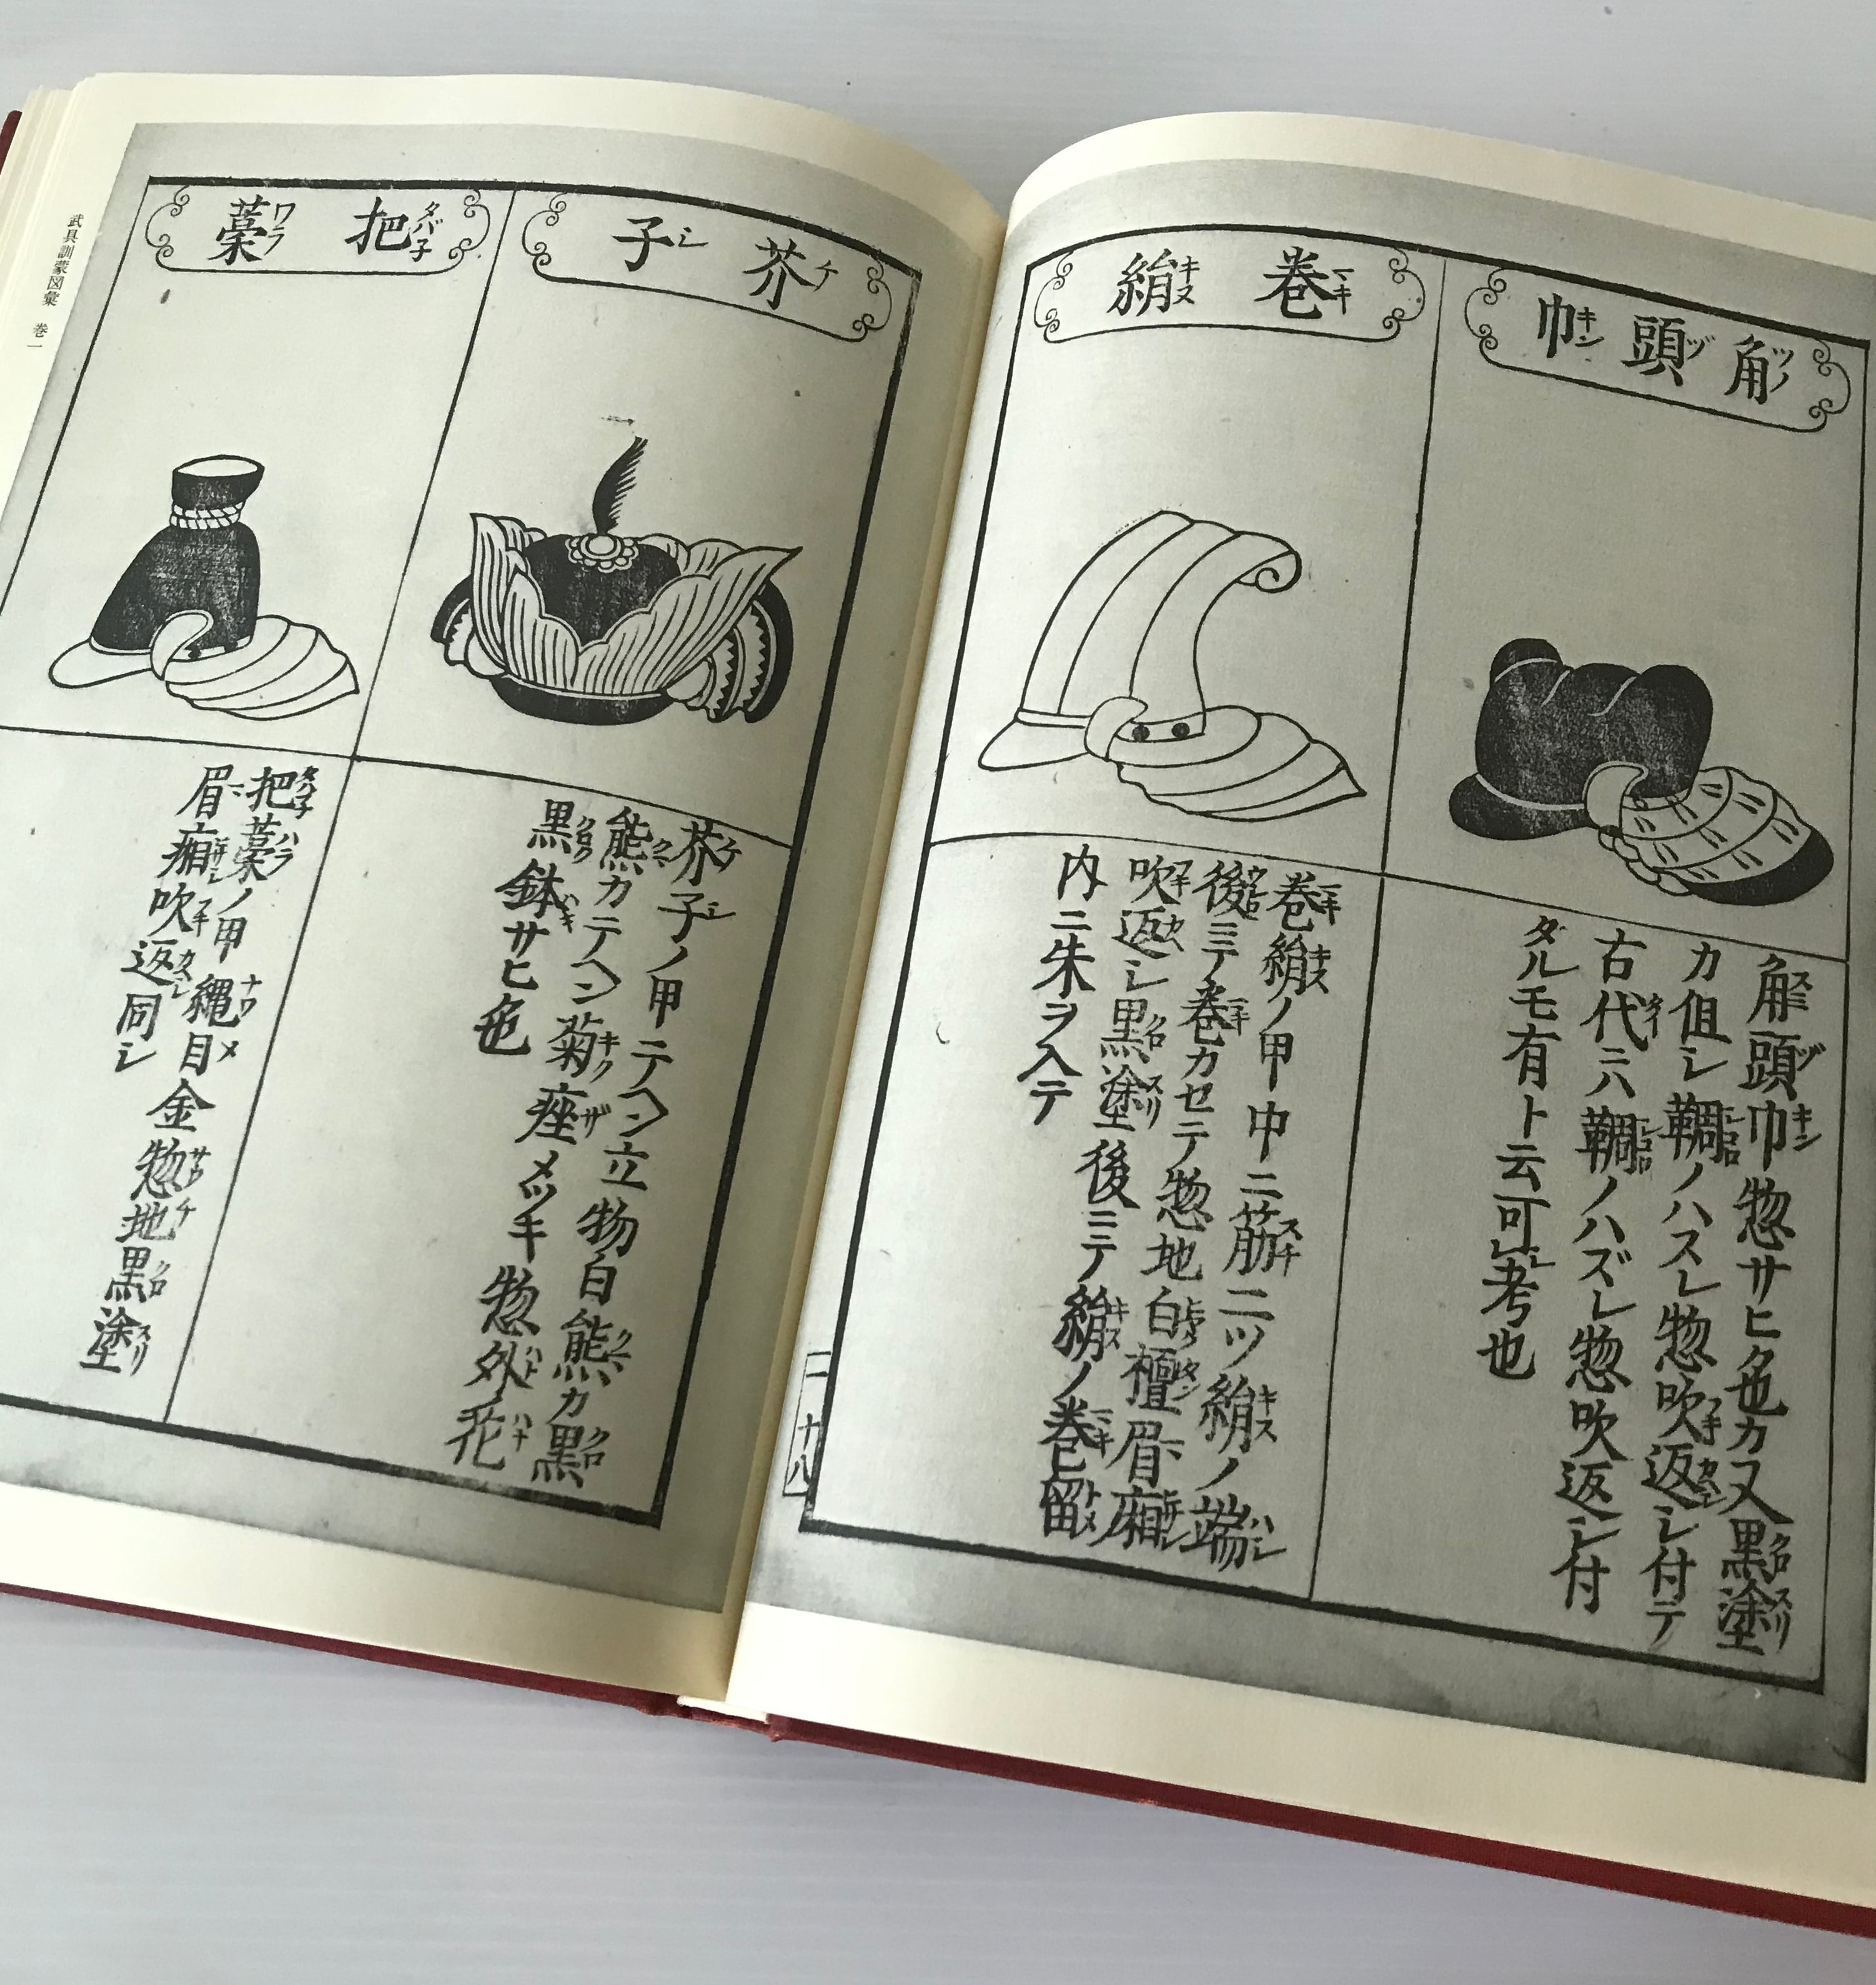 角頭巾
ツノ ヅ キン
觧頭巾惣サヒ色カ又黒塗
カ但シ鞠ノハスレ惣吹返シ付テ
古代ニハ鞠ノハズレ惣吹返シ付
タルモ有ト云可考也
巻絹
マキ キヌ
巻絹ノ甲中ニ筋二ツ絹ノ端
後ニテ巻カセテ惣地白檀眉庿
吹返シ黒塗後ニテ絹ノ巻留
内ニ朱ヲ入テ
芥子
ケ シ
芥子ノ甲テヘン立物白熊カ黒
熊カテヘン菊座メッキ惣外花
黒鉢サヒ色
把藁
タバ子 ワラ
把藁ノ甲縄目金惣地黒塗
眉庿吹返同シ
武具訓蒙図彙 巻一